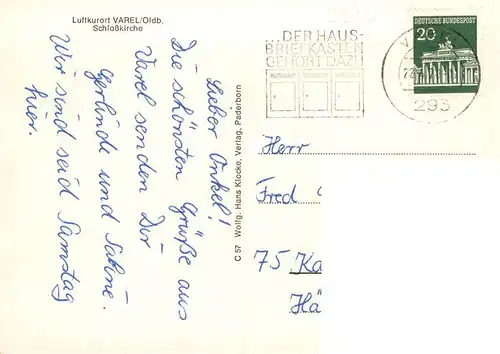 Luftkurort VAREL/Oldb.
Schloßkirche
Lieber Onkel!
Die schönsten Grüße aus
Varel senden Dir
Gerlinde und Sabine.
Wir sind seid Samstag
hier.
C 57 Wolfg. Hans Klocke, Verlag, Paderborn
...DER HAUS-
BRIEFKASTEN
GEHÖRT DAZU
DEUTSCHE BUNDESPOST
20
293
Herr
Fred
75 Ka
Hä